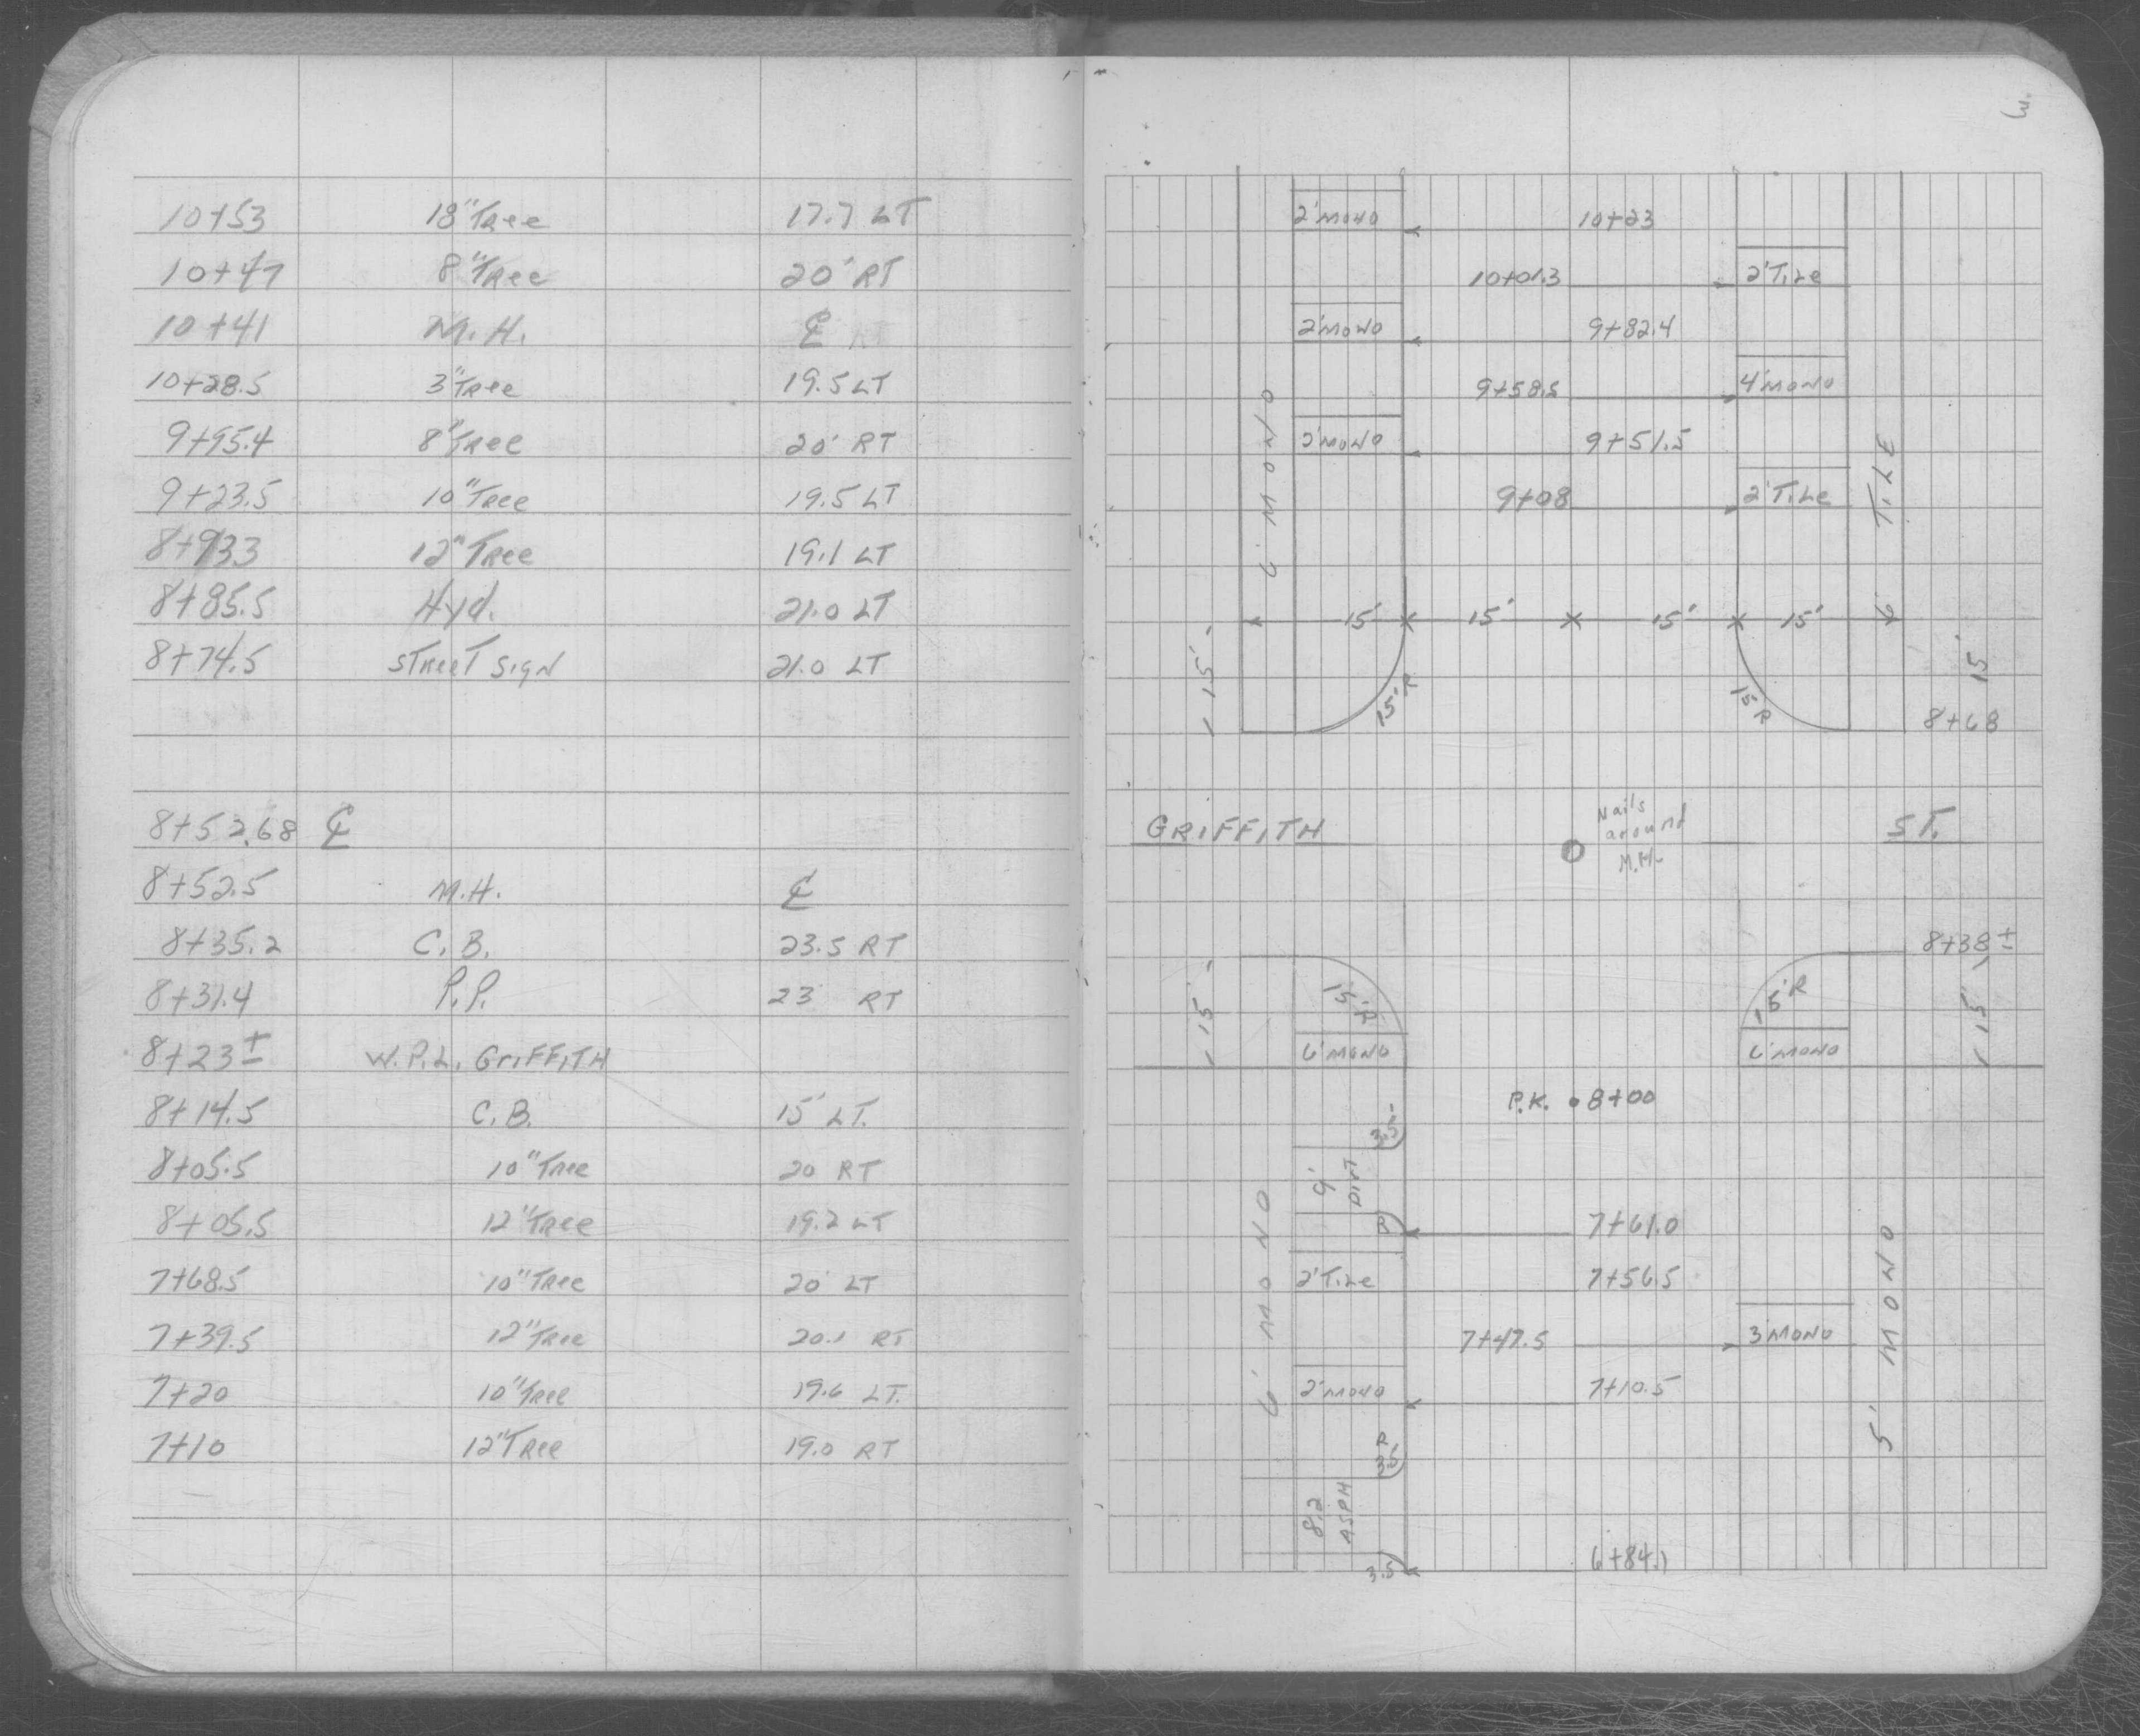 10+53 18" Tree 17.7 LT
10+47 8" Tree 20' RT
10+41 M.H. ℄
10+28.5 3" Tree 19.5 LT
9+95.4 8" Tree 20' RT
9+23.5 10" Tree 19.5 LT
12" Tree 19.1 LT
8+85.5 Hyd. 21.0 LT
8+74.5 STREET SIGN 21.0 LT
8+52.68 ℄
8+52.5 M.H. ℄
8+35.2 C.B. 23.5 RT
8+31.4 P.P. 23 RT
8+23± W.P.L. GRIFFITH
8+14.5 C.B. 15' LT.
8+05.5 10" Tree 20 RT
8+05.5 12" Tree 19.2 LT
7+68.5 10" Tree 20' LT
7+39.5 12" Tree 20.1 RT
7+20 10" Tree 19.6 LT.
7+10 12" Tree 19.0 RT
3.
2' MONO 10+23
10+01.3 2' TiLe
2' MONO 9+82.4
9+58.5 4' MONO
2' MONO 9+51.5
9+08 2' TiLe
6' MONO
6' TILE
15 15' 15' 15'
15' 15'R 15 R 15'
8+68
GRIFFITH ST.
Nails
around
M.H.
8+38±
15' 15'R 15'R 15'
6' MONO 6' MONO
P.K. 8+00
3.5'
9' DIRT
R 7+61.0
2' TiLe 7+56.5
7+47.5 3' MONO
2' MONO 7+10.5
6' MONO
5' MONO
R
3.5
8.2 ASPH
3.5 6+84.1